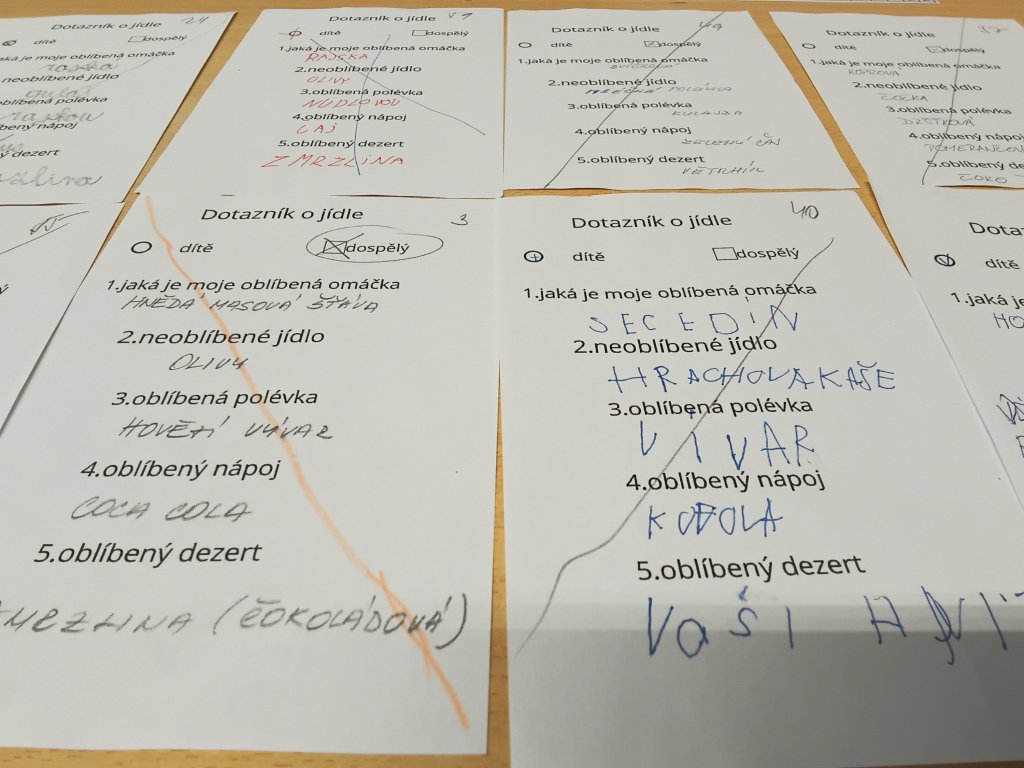 24
dítě
dospělý
jaká je moje oblíbená omáčka
rajska
neoblíbené jídlo
guláš
oblíbená polévka
oblíbený nápoj
oblíbený dezert
Dotazník o jídle
dítě
dospělý
1.jaká je moje oblíbená omáčka
RAJSKA
2.neoblíbené jídlo
OLIVY
3.oblíbená polévka
NUDLOVOU
4.oblíbený nápoj
ČAJ
5.oblíbený dezert
ZMRZLINA
Dotazník o jídle
49
dítě
dospělý
1.jaká je moje oblíbená omáčka
2.neoblíbené jídlo
POLÉVKA
3.oblíbená polévka
KULAJDA
4.oblíbený nápoj
ZELENÝ ČAJ
5.oblíbený dezert
VĚTRNÍK
Dotazník o jídle
37
dítě
dospělý
1.jaká je moje oblíbená omáčka
KOPROVA
2.neoblíbené jídlo
ČOČKA
3.oblíbená polévka
DRŠTKOVÁ
4.oblíbený nápoj
POMERANČOV
5.oblíbený de
ČOKO
Dotazník o jídle
3
dítě
dospělý
1.jaká je moje oblíbená omáčka
HNĚDÁ MASOVÁ ŠŤÁVA
2.neoblíbené jídlo
OLIVY
3.oblíbená polévka
HOVĚZÍ VÝVAR
4.oblíbený nápoj
COCA COLA
5.oblíbený dezert
ZMRZLINA (ČOKOLÁDOVÁ)
Dotazník o jídle
40
dítě
dospělý
1.jaká je moje oblíbená omáčka
SECEDÍN
2.neoblíbené jídlo
HRACHOVA KAŠE
3.oblíbená polévka
VÍVAR
4.oblíbený nápoj
KOFOLA
5.oblíbený dezert
VaŠI
Dota
dítě
1.jaká je
HO